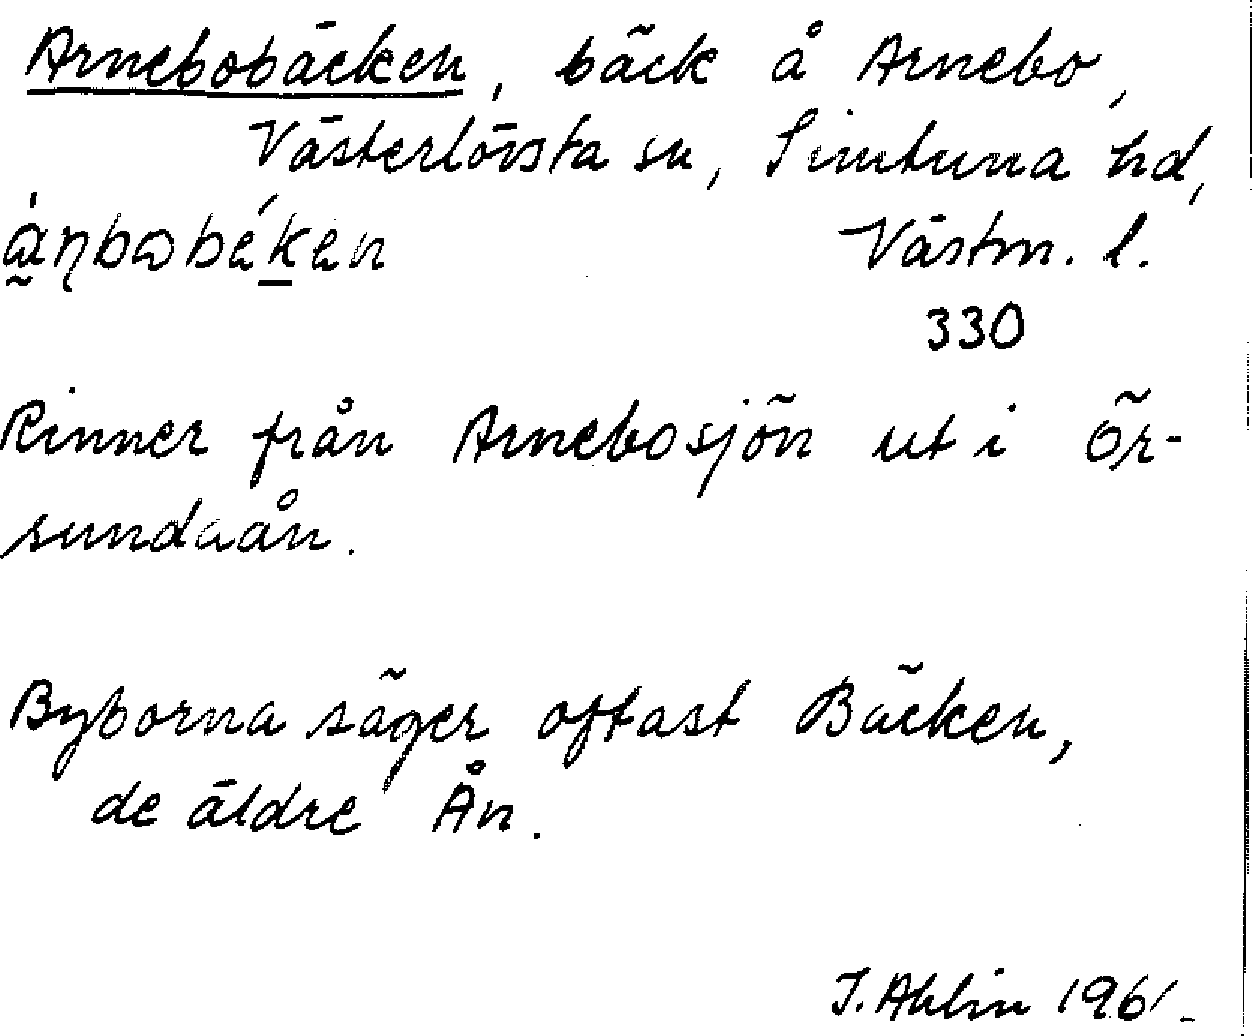 Arnebobäcken, bäck å Arnebo,
Västerlövsta sn, Simtuna hd,
Västm. l.
330
Rinner från Arnebosjön ut i Ör-
sundaån.
Byborna säger oftast Bäcken,
de äldre Ån.
I. Ahlin 1961